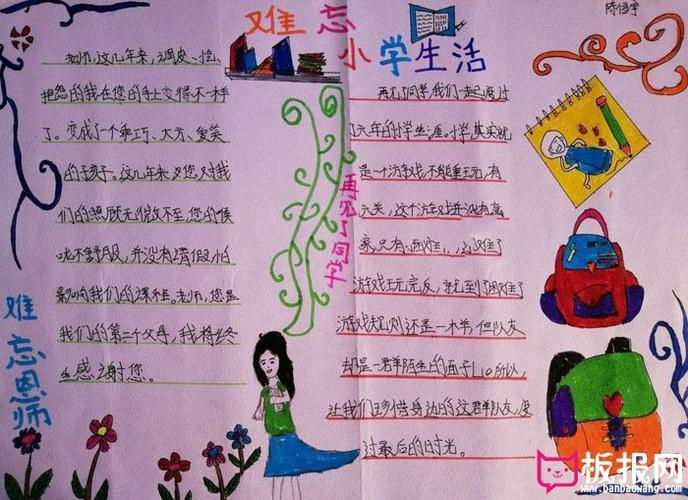 难忘
小学生活
陈信宇
老师,这几年来,调皮、捣
把您的我在您的手上变得不一样
了。变成了个乖巧、大方、爱笑
的孩子。这几年来,您对我
们的照顾无微不至,您的喉
咙不舒服,并没有请假怕
影响我们的课程。老师,您是
我们的第二个父母,我将终
生感谢您。
难忘恩师
再见了同学
再见了同学,我们一起已度过
了六年的小学生涯。小学其实就
是一个游戏,不能重玩,有
六关,这个游戏并没有赢
家,只有
游戏玩完后,就至
游戏规则还是一样,但队友
却是一群陌生的面子L。所以,
让我们珍惜身边的这群队友,度
过最后的时光。
板报网
www.banbaowang.com